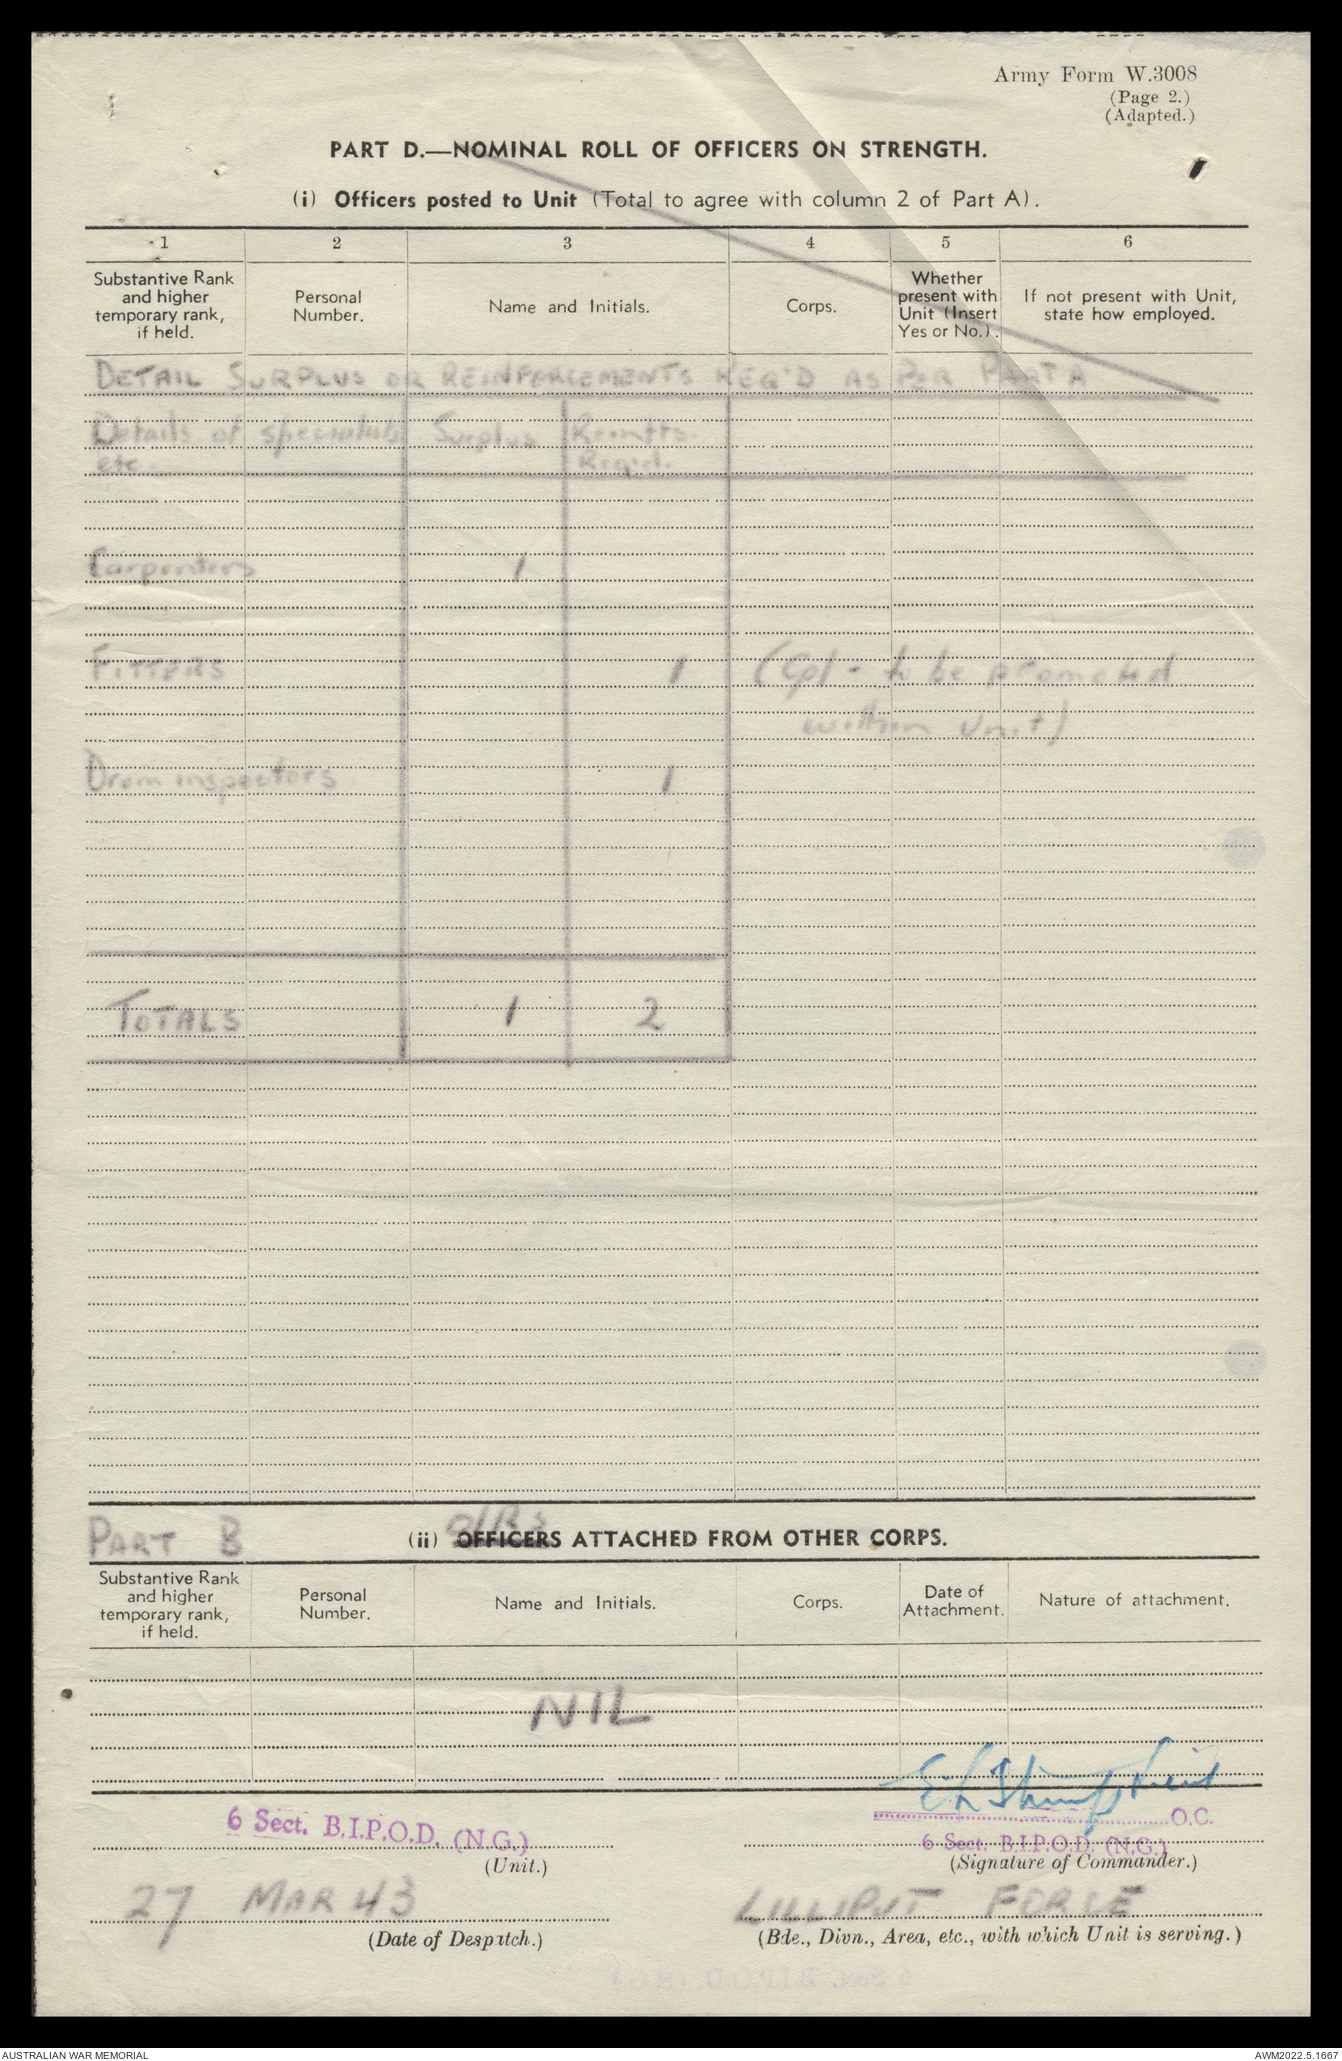 Army Form W.3008
(Page 2.)
(Adapted.)
PART D.—NOMINAL ROLL OF OFFICERS ON STRENGTH.
(i) Officers posted to Unit (Total to agree with column 2 of Part A).
1 2 3 4 5 6
Substantive Rank and higher temporary rank, if held. Personal Number. Name and Initials. Corps. Whether present with Unit (Insert Yes or No.). If not present with Unit, state how employed.
DETAIL SURPLUS OR REINFORCEMENTS REQ'D AS PER PART A
Details of specialists Surplus Reinfts.
etc. Req'd.
Carpenters 1
FITTERS 1 (Cpl - to be promoted
within Unit)
Drum inspectors 1
TOTALS 1 2
PART B (ii) OFFICERS ATTACHED FROM OTHER CORPS.
O/Rs
Substantive Rank and higher temporary rank, if held. Personal Number. Name and Initials. Corps. Date of Attachment. Nature of attachment.
NIL
O.C.
6 Sect. B.I.P.O.D. (N.G.) 6 Sect. B.I.P.O.D. (N.G.)
(Unit.) (Signature of Commander.)
27 MAR 43 LILLIPUT FORCE
(Date of Despatch.) (Bde., Divn., Area, etc., with which Unit is serving.)
AUSTRALIAN WAR MEMORIAL AWM2022.5.1667